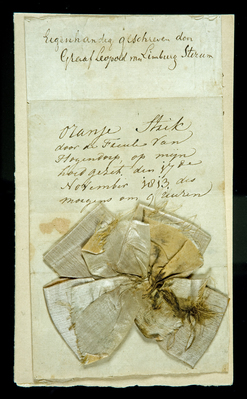 Eigenhandig geschreven door
Graaf Leopold van Limburg Stirum
Oranje Strik
door de Freule Van
Hogendorp op mijn
hoed gezet, den 17de
November 1813, des
morgens om 9 uuren